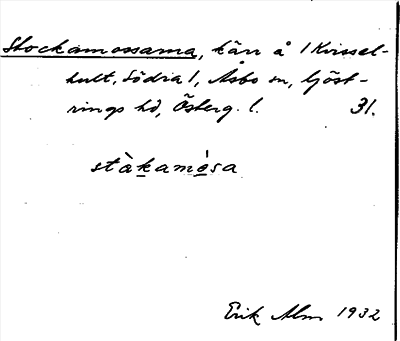 Stockamossarna, kärr å 1 Kvissel-
hult, Södra 1, Åsbo sn, Göst-
rings hd, Österg. l. 31.
stàkamósa
Erik Alm 1932